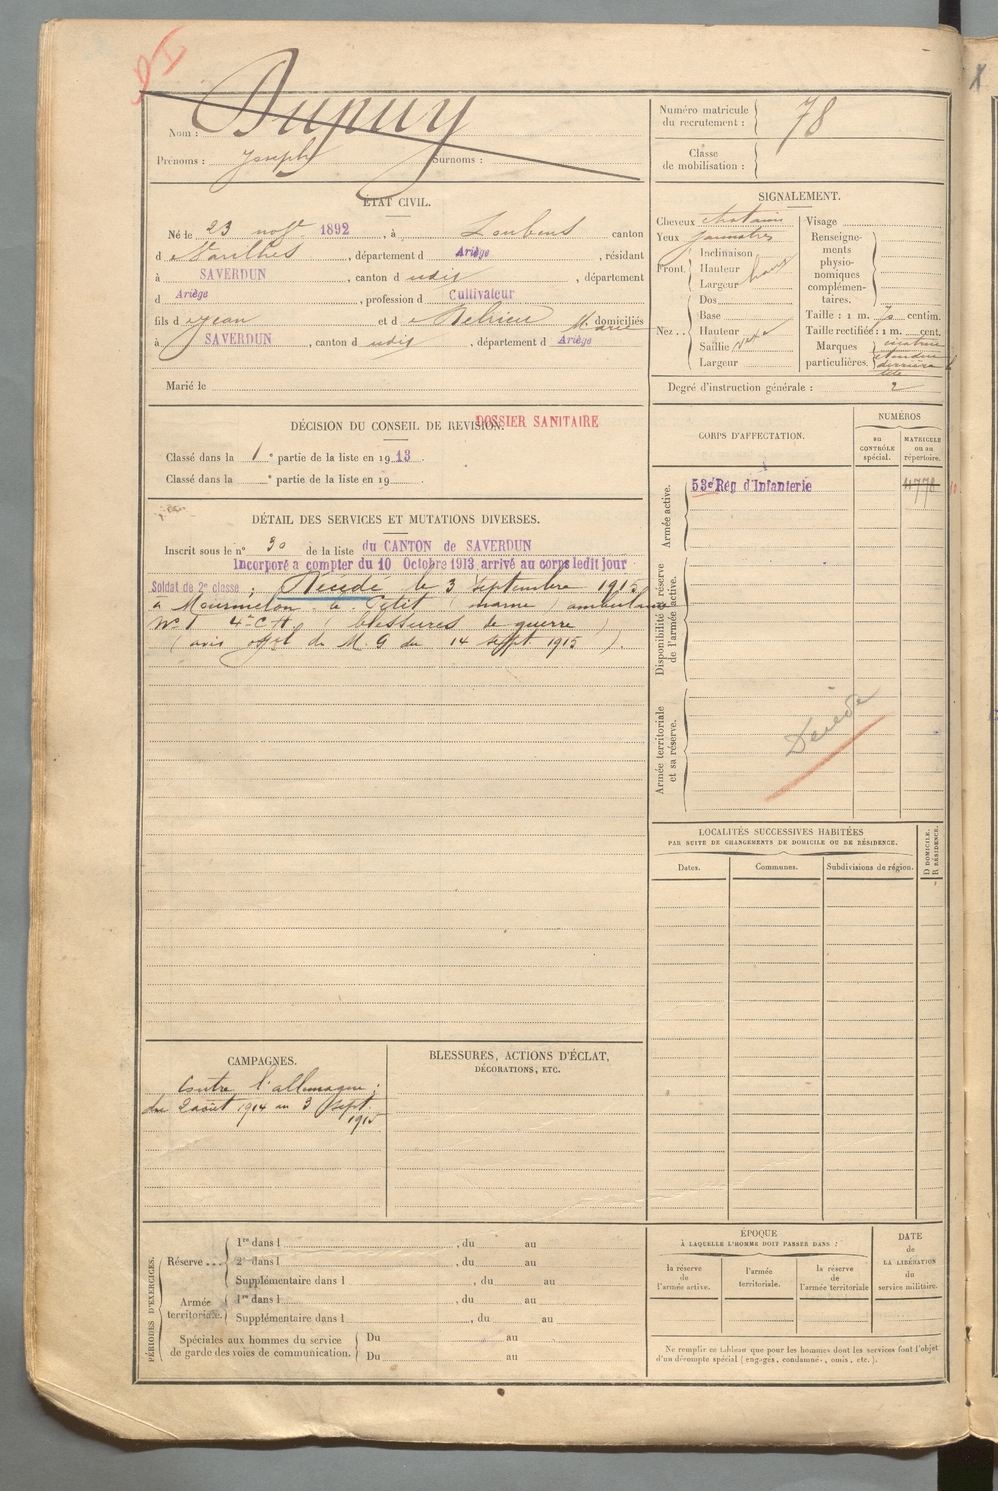 Nom : Dupuy
Prénoms : Joseph Surnoms :
Numéro matricule du recrutement : 78
Classe de mobilisation :
ÉTAT CIVIL.
Né le 23 1892, à Loubens canton
d Varilhes, département d Ariège, résidant
à SAVERDUN, canton d udit, département
d Ariège, profession d Cultivateur
fils d Jean et d Delrieu Marie domiciliés
à SAVERDUN, canton d udit, département d Ariège
Marié le
SIGNALEMENT.
Cheveux chatains
Yeux jaunatres
Front. Inclinaison
Hauteur haut
Largeur
Nez . . Dos
Base
Hauteur
Saillie
Largeur
Visage
Renseignements physionomiques complémentaires.
Taille : 1 m. 70 centim.
Taille rectifiée : 1 m. cent.
Marques particulières. cicatrice
derrière
tête
Degré d'instruction générale : 2
DÉCISION DU CONSEIL DE REVISION.
DOSSIER SANITAIRE
Classé dans la 1e partie de la liste en 1913.
Classé dans la e partie de la liste en 19 .
DÉTAIL DES SERVICES ET MUTATIONS DIVERSES.
Inscrit sous le n° 30 de la liste du CANTON de SAVERDUN
Incorporé a compter du 10 Octobre 1913 arrivé au corps ledit jour
Soldat de 2e classe ; Décédé le 3 septembre 1915
à Mourmelon le Petit (marne) ambulance
N° 1 4e C.A (blessures de guerre)
(avis offel de M. G du 14 sept 1915).
CORPS D'AFFECTATION.
NUMÉROS
au CONTRÔLE spécial.
MATRICULE ou au répertoire.
Armée active.
53e Rég d'Infanterie 4778
Disponibilité et réserve de l'armée active.
Armée territoriale et sa réserve.
Décédé
LOCALITÉS SUCCESSIVES HABITÉES
PAR SUITE DE CHANGEMENTS DE DOMICILE OU DE RÉSIDENCE.
Dates.
Communes.
Subdivisions de région.
D DOMICILE.
R RÉSIDENCE.
CAMPAGNES.
Contre l'allemagne ;
du 2 août 1914 au 3 sept.
1915
BLESSURES, ACTIONS D'ÉCLAT,
DÉCORATIONS, ETC.
PÉRIODES D'EXERCICES.
Réserve . . . 1re dans l , du au
2e dans l , du au
Supplémentaire dans l , du au
Armée territoriale. 1re dans l , du au
Supplémentaire dans l , du au
Spéciales aux hommes du service de garde des voies de communication. Du au
Du au
ÉPOQUE
À LAQUELLE L'HOMME DOIT PASSER DANS :
la réserve de l'armée active.
l'armée territoriale.
la réserve de l'armée territoriale
DATE de LA LIBÉRATION du service militaire.
Ne remplir ce tableau que pour les hommes dont les services font l'objet
d'un décompte spécial (engagés, condamnés, omis, etc.).